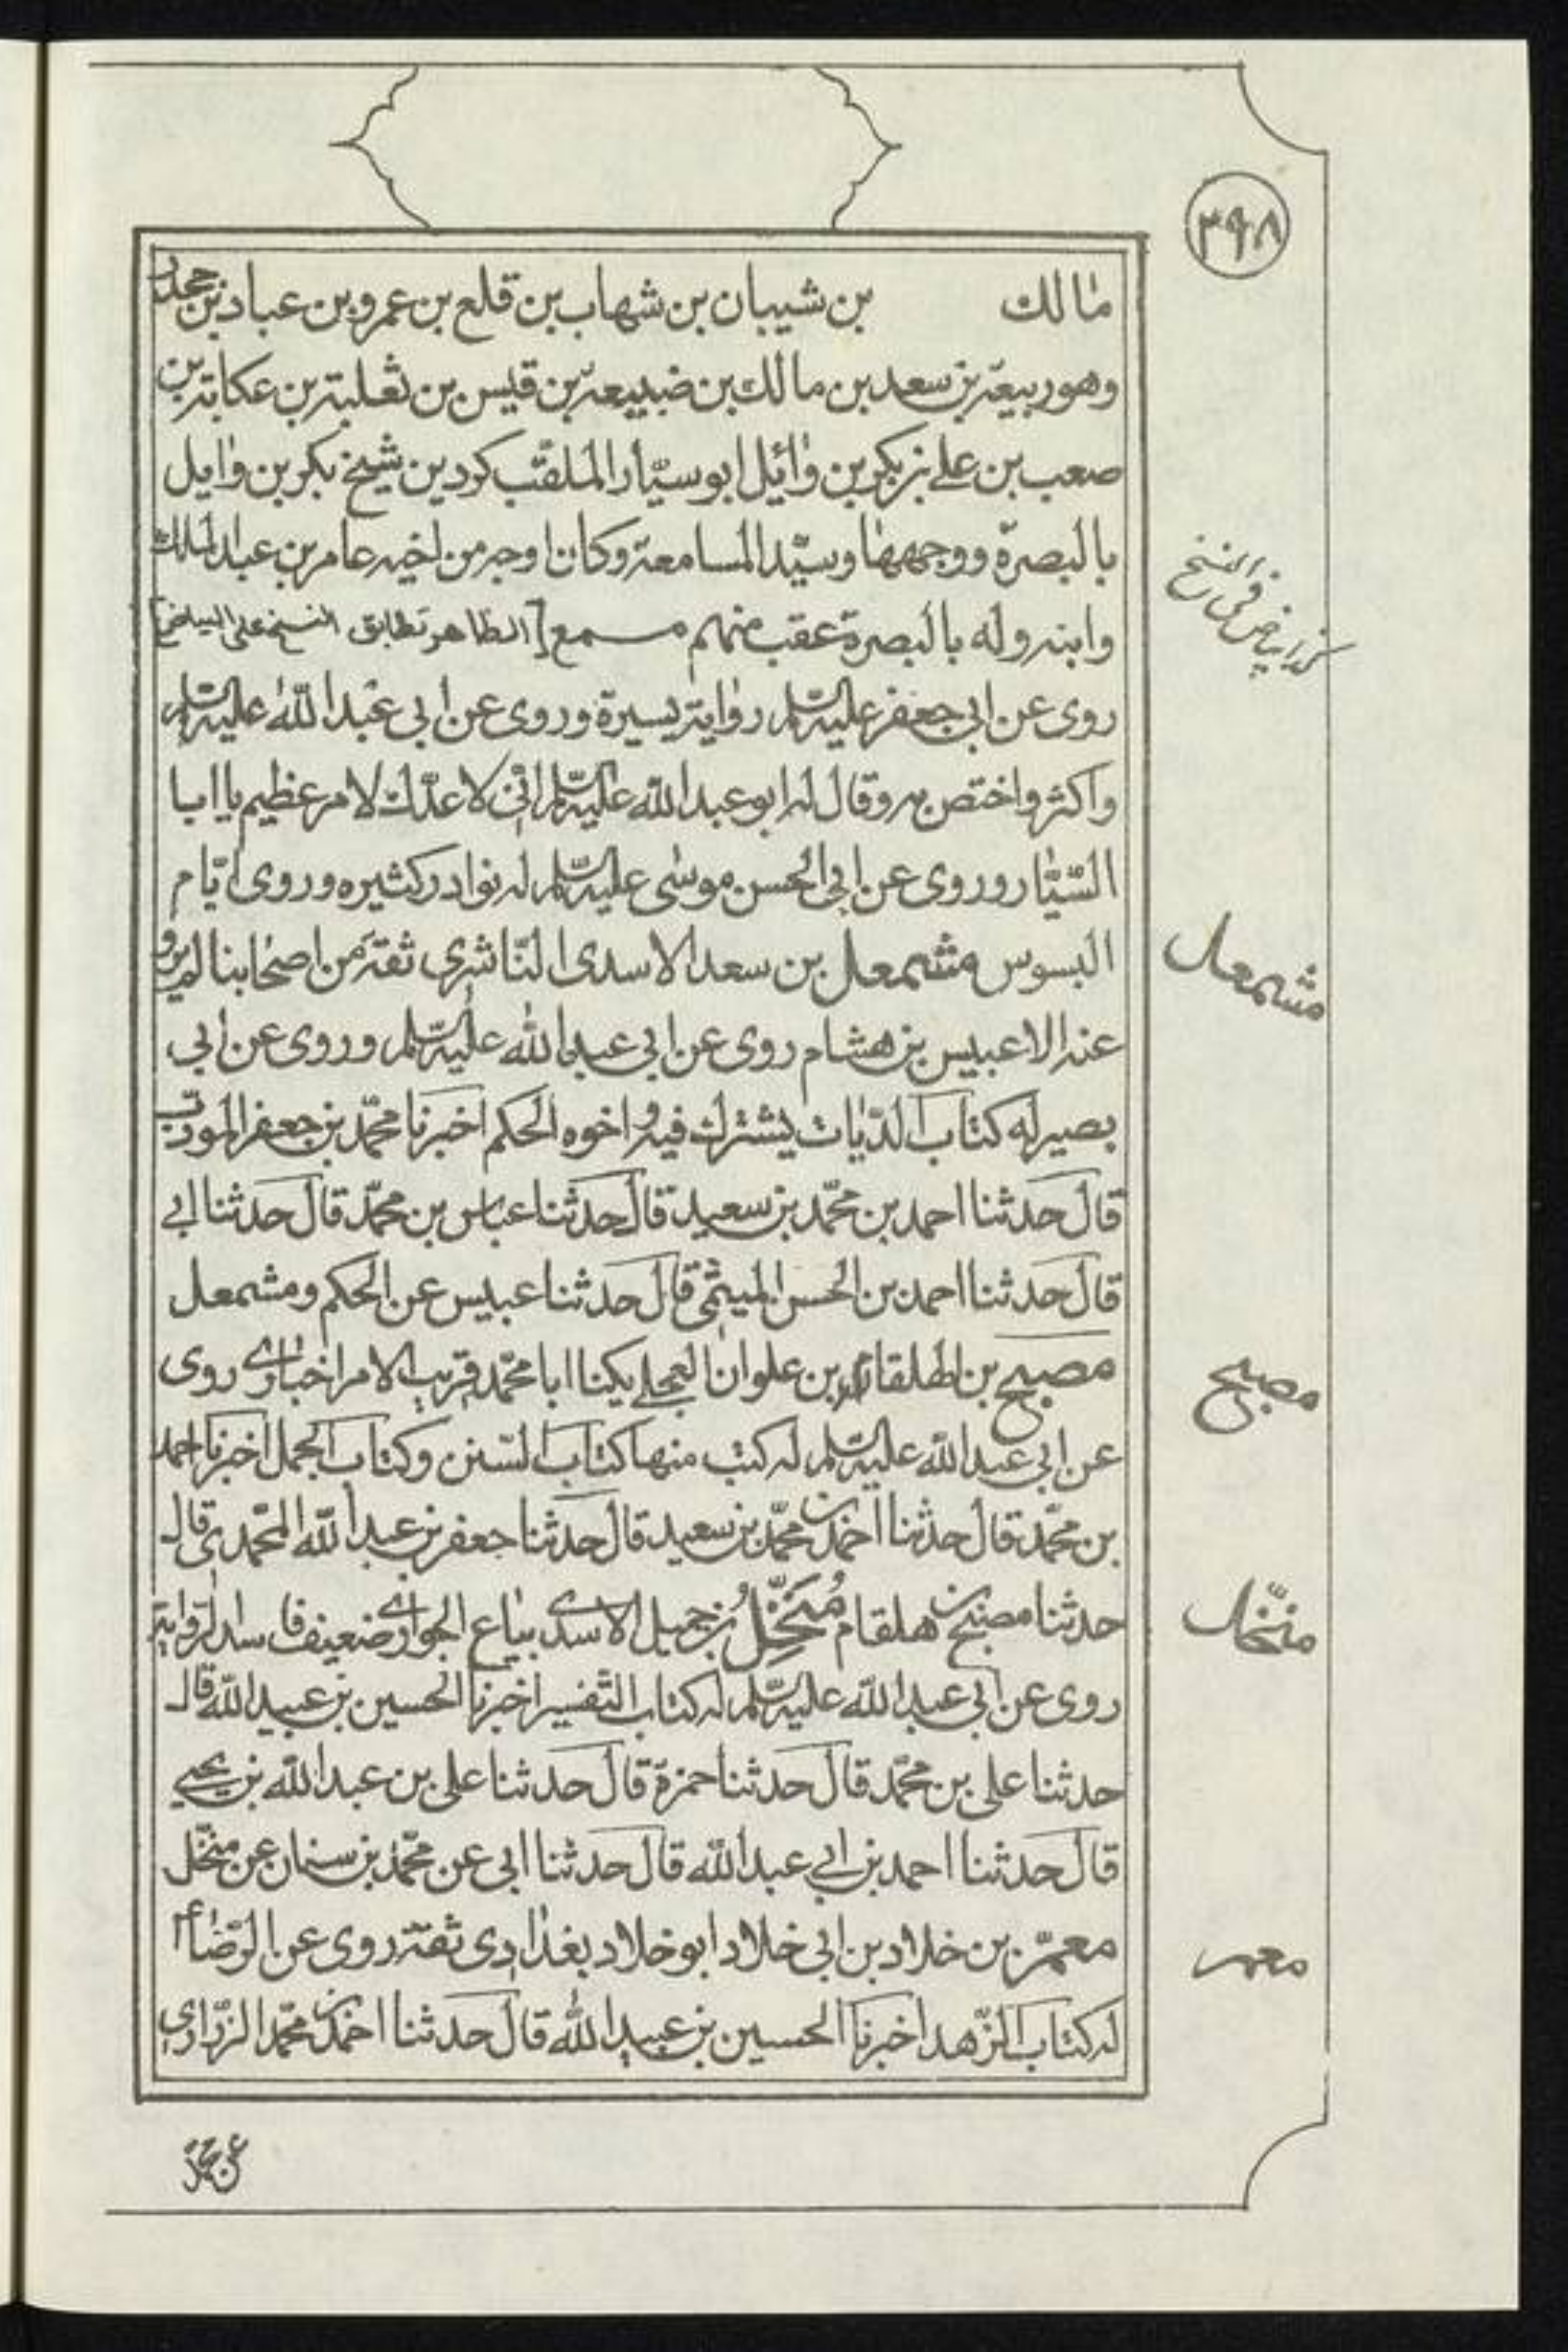 ٣٩٨
مالك بن شيبان بن شهاب بن قلع بن عمرو بن عباد بن جحدر
وهو ربيعة بن سعد بن مالك بن ضبيعة بن قيس بن ثعلبة بن عكابة بن
صعب بن علي بن بكر بن وائل ابو سيّار الملقّب كردين شيخ بكر بن وايل
بالبصرة ووجهها وسيّد المسامعة وكان اوجه من اخيه عامر بن عبد الملك
وابنه وله بالبصرة عقب منهم مسمع [الظاهر تطابق النسخ على البياض]
كذا بياض في النسخ
روى عن ابي جعفر عليه السّلم رواية يسيرة وروى عن ابي عبد الله عليه السّلم
واكثر واختص به وقال له ابو عبد الله عليه السّلم انّي لاعدّك لامر عظيم يا ابا
السّيّار وروى عن ابي الحسن موسى عليه السّلم له نوادر كثيره وروى ايّام
البسوس مشمعل بن سعد الاسدى النّاشري ثقة من اصحابنا لم يرو
مشمعل
عنه الا عبيس بن هشام روى عن ابي عبد الله عليه السّلم وروى عن ابي
بصير له كتاب الدّيات يشترك فيه و اخوه الحكم اخبرنا محمّد بن جعفر المودّب
قال حدثنا احمد بن محمّد بن سعيد قال حدثنا عباس بن محمّد قال حدثنا ابي
قال حدثنا احمد بن الحسن الميثمي قال حدثنا عبيس عن الحكم ومشمعل
مصبح بن لطلقام بن علوان العجلي يكنا ابا محمّد قريب الامر اخباري روى
مصبح
عن ابي عبد الله عليه السّلم له كتب منها كتاب السّنن وكتاب الجمل اخبرنا احمد
بن محمّد قال حدثنا احمد بن محمّد بن سعيد قال حدثنا جعفر بن عبد الله المحمّدي قال
حدثنا مصبح بن هلقام مُنَخِّلُ بن جميل الاسدي بيّاع الجواري ضعيف فاسد الرواية
منّخل
روى عن ابي عبد الله عليه السّلم له كتاب التّفسير اخبرنا الحسين بن عبيد الله قال
حدثنا علي بن محمّد قال حدثنا حمزة قال حدثنا علي بن عبد الله بن يحيى
قال حدثنا احمد بن ابي عبد الله قال حدثنا ابي عن محمّد بن سنان عن منخّل
معمّر بن خلاد بن ابي خلاد ابو خلاد بغدادى ثقة روى عن الرّضا ع
معمر
له كتاب الزّهد اخبرنا الحسين بن عبيد الله قال حدثنا احمد بن محمّد الزّراري
عن محمّد